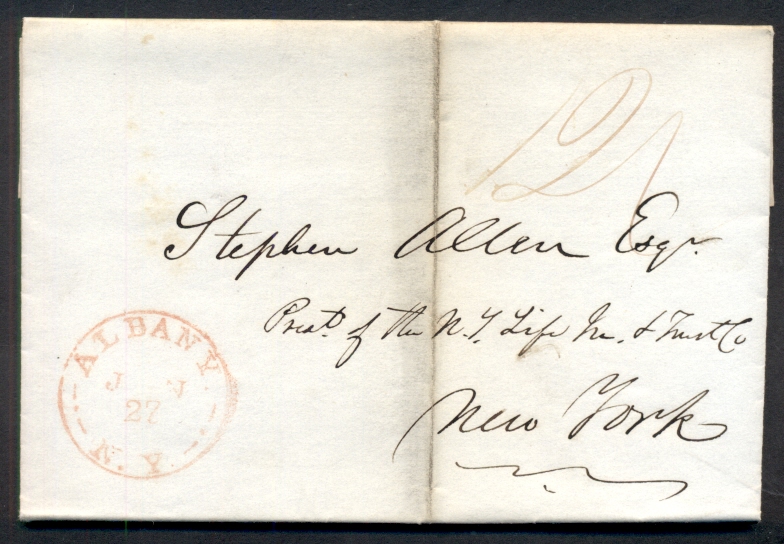 12½
Stephen Allen Esqr.
Prest. of the N.Y. Life In. & Trust Co
New York
ALBANY
J
27
N.Y.